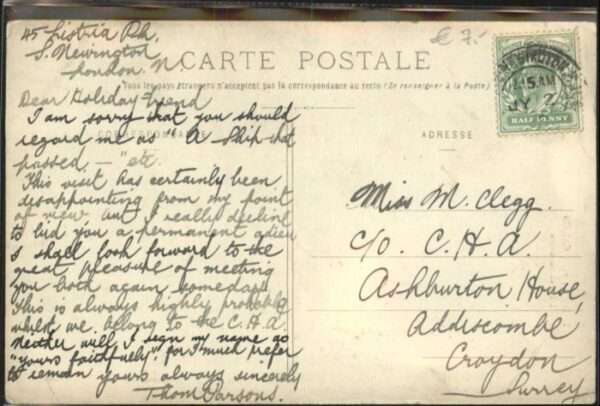 45 Listria Pk.
S. Newington
London. N.
£ 7.-
CARTE POSTALE
Tous les pays étrangers n'acceptent pas la correspondance au recto (Se renseigner à la Poste)
CORRESPONDANCE
ADRESSE
HALFPENNY
Dear Holiday friend
I am sorry that you should
regard me as "A Ship that
passed — " etc.
This visit has certainly been
disappointing from my point
of view but I really decline
to bid you a permanent adieu
I shall look forward to the
great pleasure of meeting
you both again someday
This is always highly probable
whilst we belong to the C.H.A.
Neither will I sign my name as
"yours faithfully" for I much prefer
to remain yours always sincerely
Thom Parsons.
Miss M. Clegg.
c/o. C.H.A.
Ashburton House,
Addiscombe
Croydon
Surrey